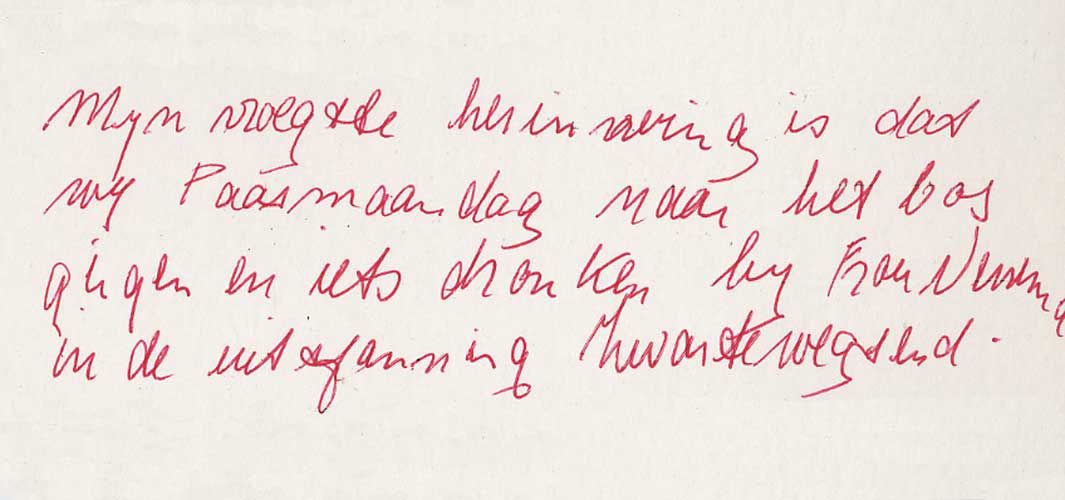 Mijn vroegste herinnering is dat
wij Paasmaandag naar het bos
gingen en iets dronken bij Frou
in de uitspanning Zwartewegsend.